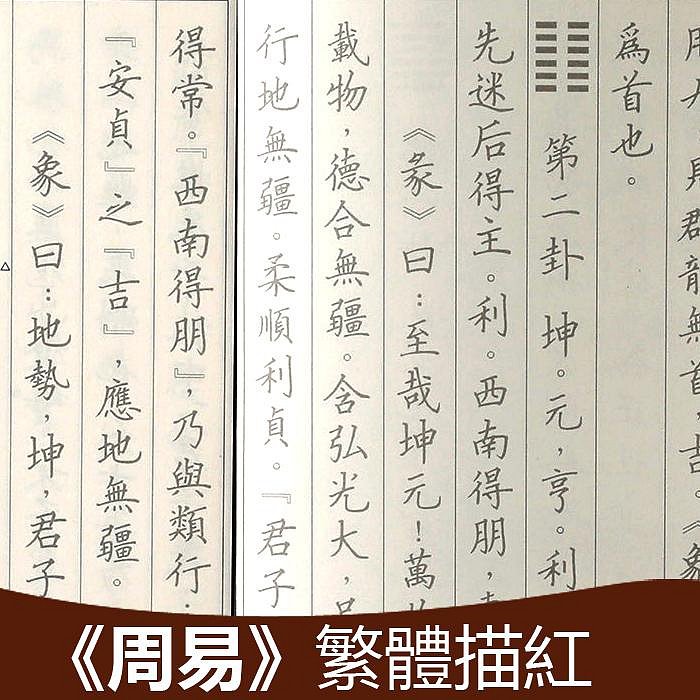 龍無首，吉。《象
爲首也。
第二卦 坤。元，亨。利
先迷后得主。利。西南得朋，
《彖》曰：至哉坤元！萬
載物，德合無疆。含弘光大，
行地無疆。柔順利貞。『君子
得常。『西南得朋』，乃與類行
『安貞』之『吉』，應地無疆。
《象》曰：地勢，坤，君子
《周易》繁體描紅